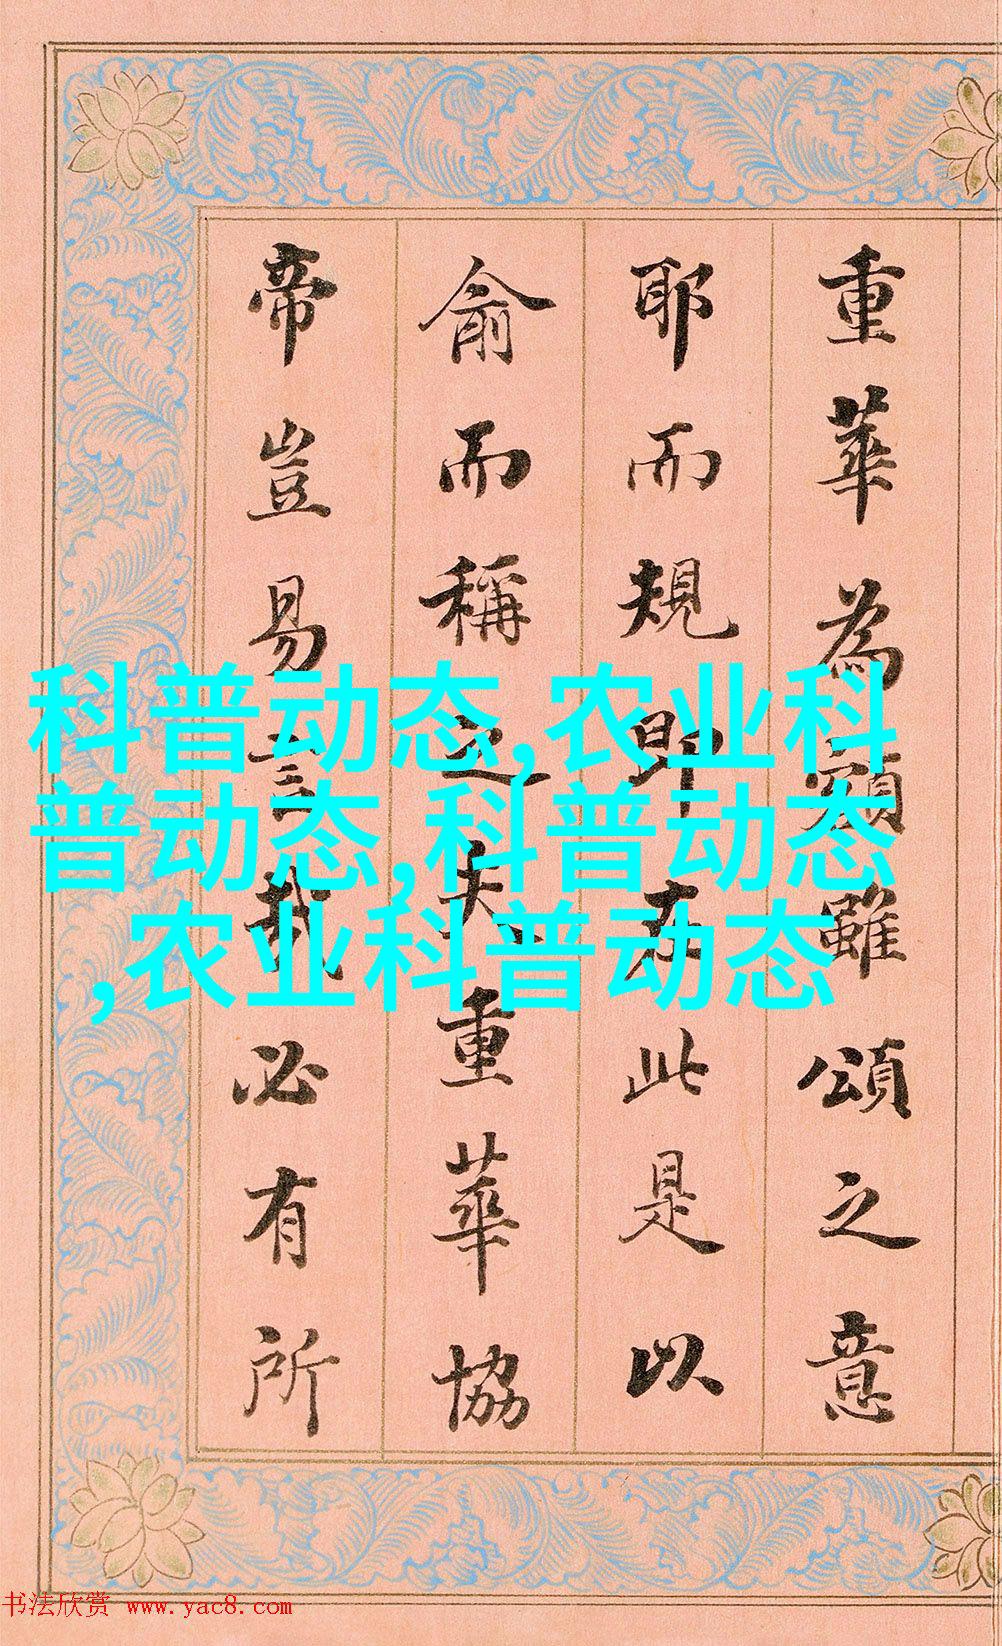 重華為額雖頌之意
耶而規即在此是以
俞而稱之夫重華協
帝豈易言哉必有所
科普动态,农业科
普动态,科普动态
,农业科普动态
书法欣赏 www.yac8.com